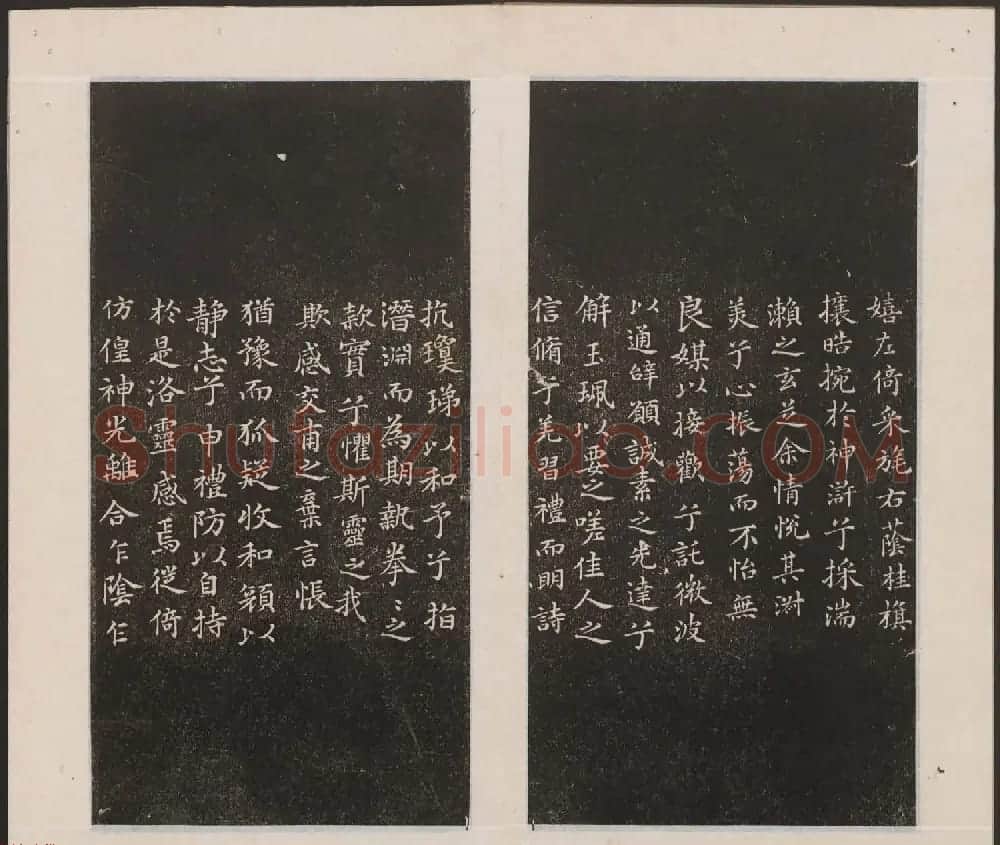 嬉左倚采旄右蔭桂旗
攘皓捥於神滸兮採湍
瀨之玄芝余情悅其淑
美兮心振蕩而不怡無
良媒以接歡兮託微波
以通辝願誠素之先達兮
解玉珮以要之嗟佳人之
信脩兮羌習禮而明詩
抗瓊珶以和予兮指
潛淵而為期執拳〻之
款實兮懼斯靈之我
欺感交甫之棄言悵
猶豫而狐疑收和顏以
靜志兮申禮防以自持
於是洛靈感焉徙倚
仿偟神光離合乍陰乍
Shufaziliao.COM